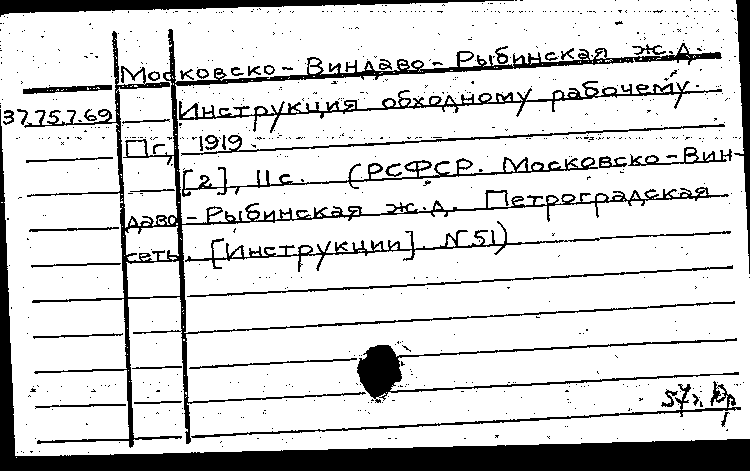 Московско-Виндаво-Рыбинская ж.д.
37.75.7.69 Инструкция обходному рабочему.
Пг, 1919.
[2], 11с. (РСФСР. Московско-Вин-
даво-Рыбинская ж.д. Петроградская
сеть. [Инструкции]. N51)